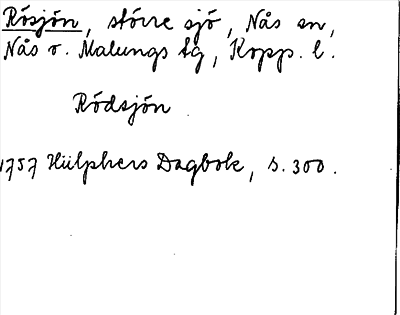 Rösjön, större sjö, Nås sn,
Nås o. Malungs tg, Kopp. l.
Rödsjön
1757 Hülphers Dagbok, s. 300.